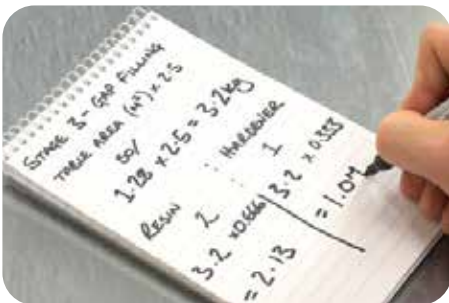 STAGE 3 - GAP FILLING
TABLE AREA (M²) x 2.5
SO/
1.28 x 2.5 = 3.2kg
RESIN : HARDENER
2 : 1
3.2 x 0.666 | 3.2 x 0.333
= 2.13 | = 1.04